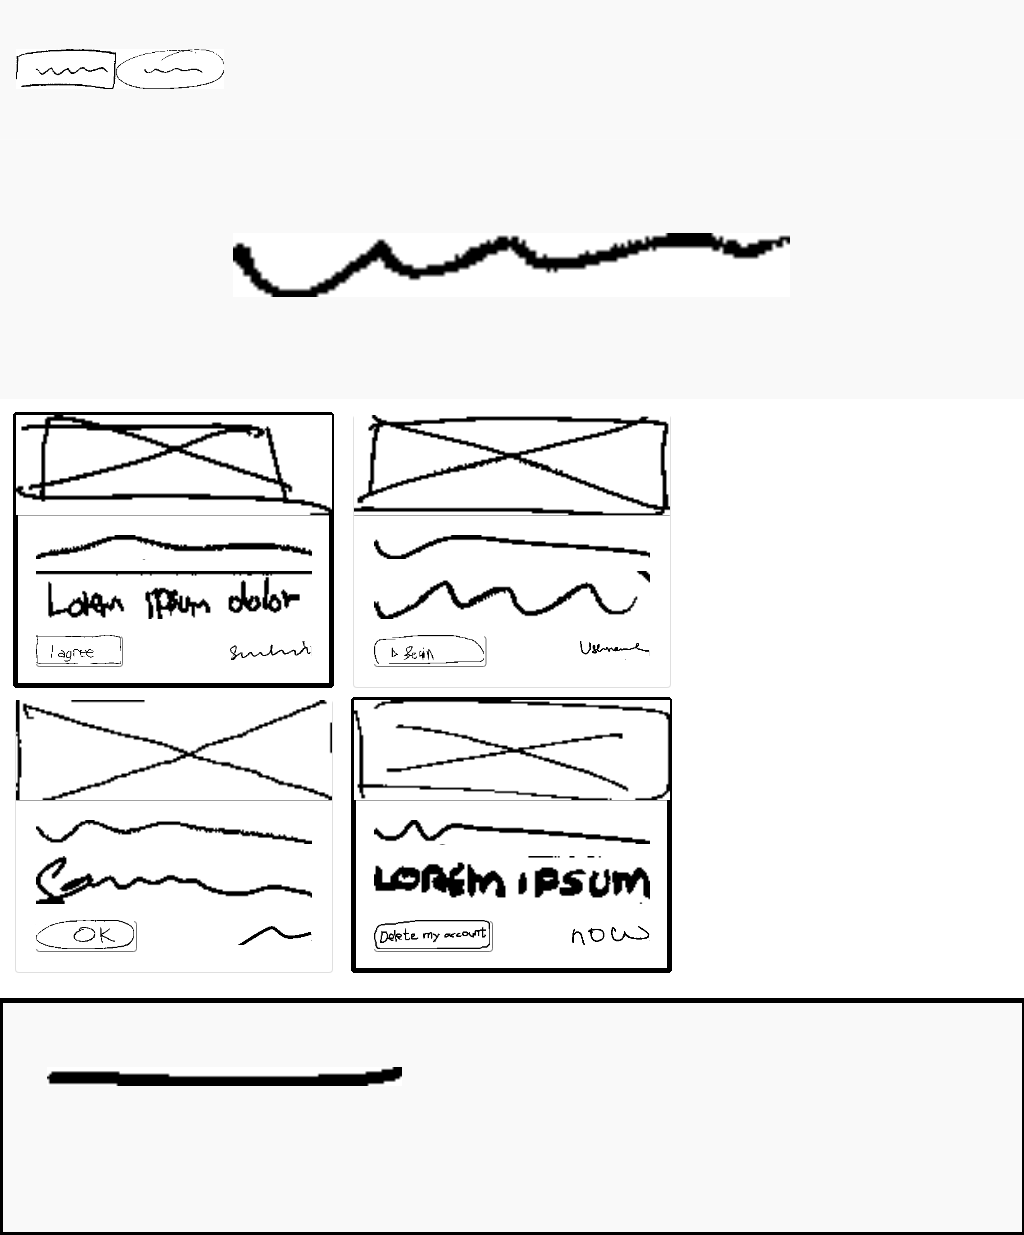 Lorem ipsum dolor
I agree
Username
OK
LOREM IPSUM
Delete my account
now